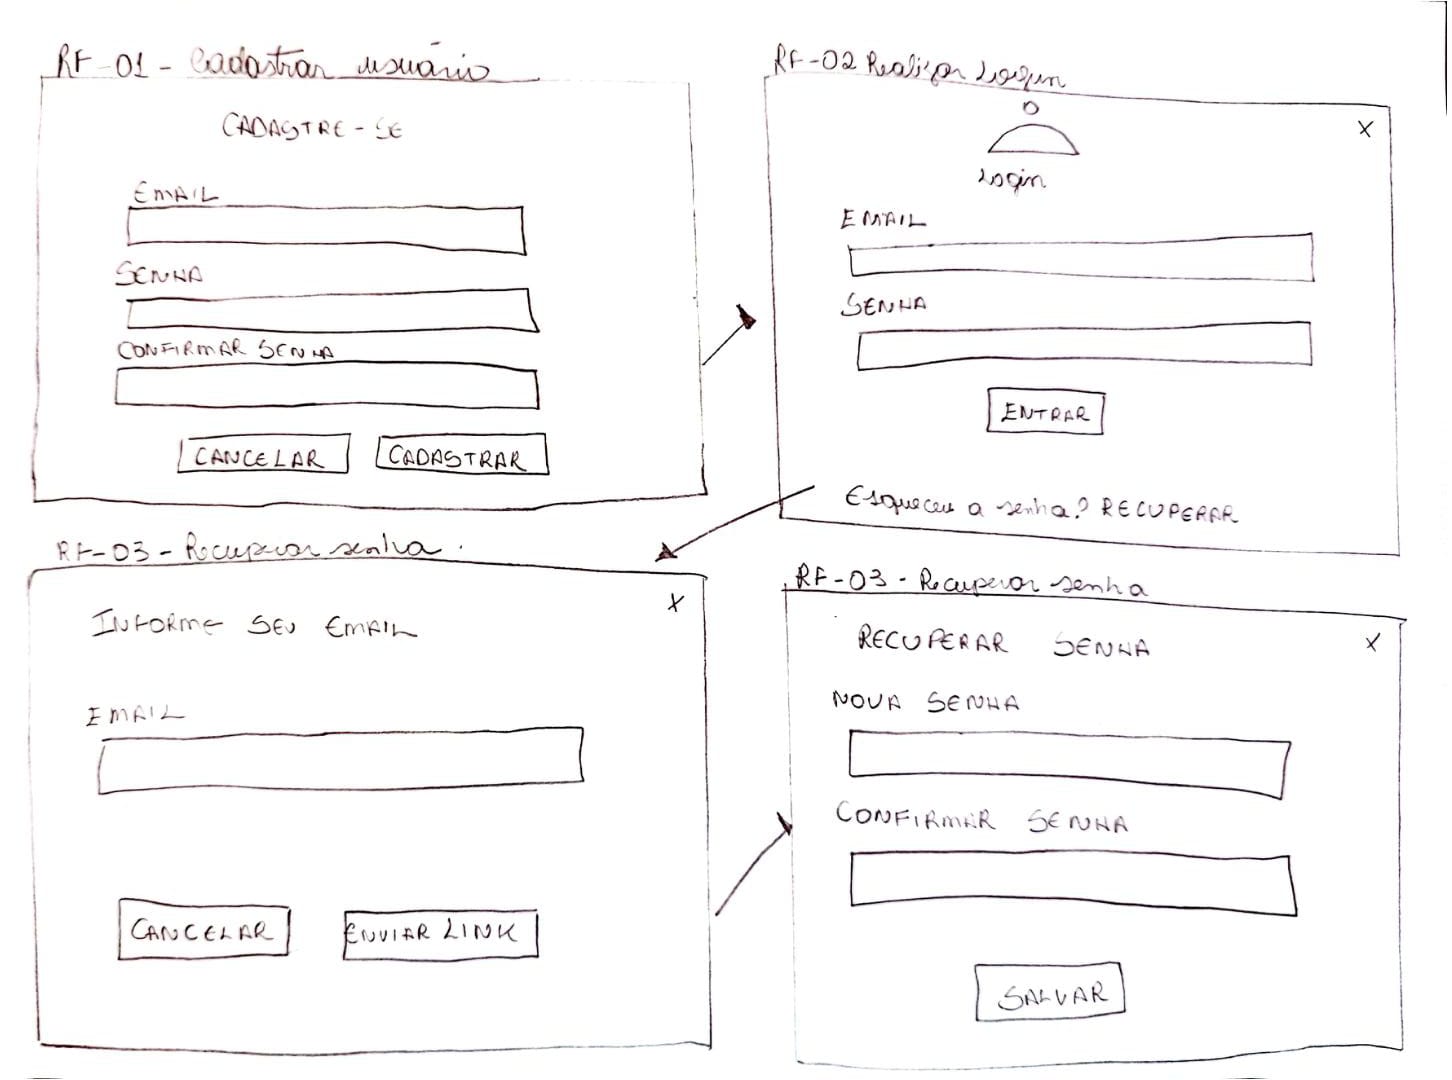 RF-01 - Cadastrar usuário
CADASTRE-SE
EMAIL
SENHA
CONFIRMAR SENHA
CANCELAR CADASTRAR
RF-02 Realizar Login
X
Login
EMAIL
SENHA
ENTRAR
Esqueceu a senha? RECUPERAR
RF-03 - Recuperar senha.
X
INFORME SEU EMAIL
EMAIL
CANCELAR ENVIAR LINK
RF-03 - Recuperar senha
RECUPERAR SENHA X
NOVA SENHA
CONFIRMAR SENHA
SALVAR